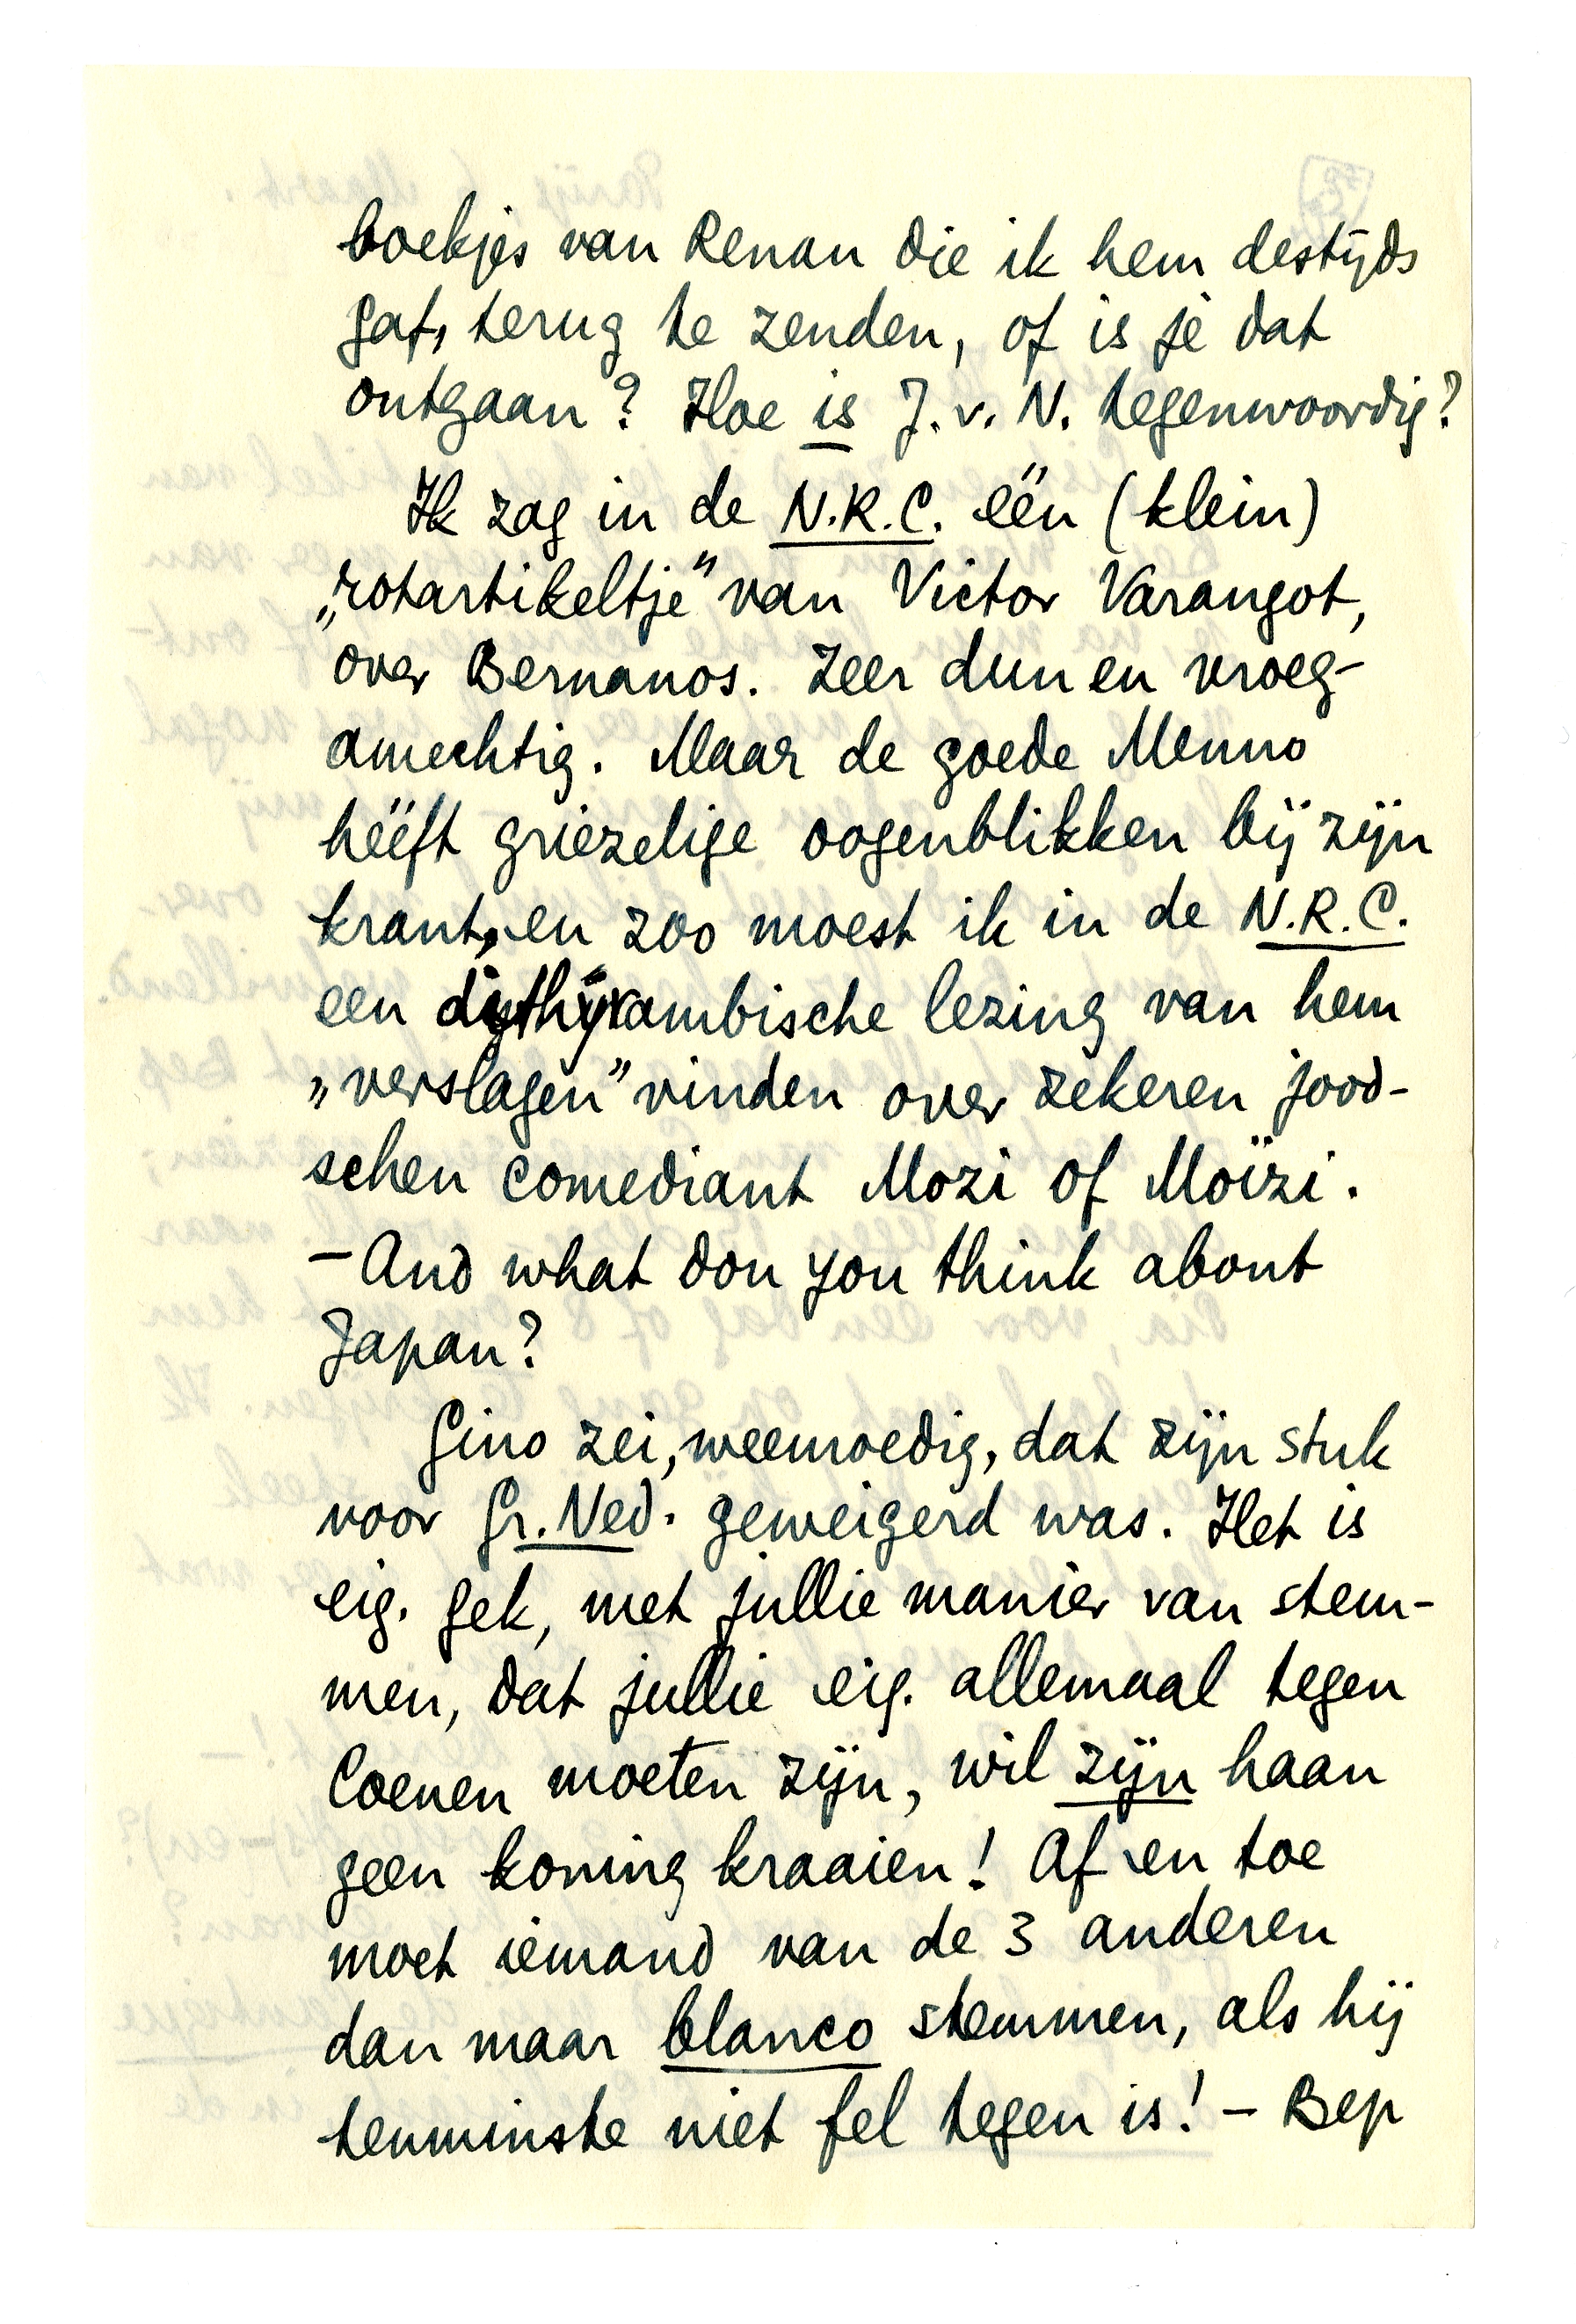 boekjes van Renan die ik hem destijds
gaf, terug te zenden, of is je dat
ontgaan? Hoe is J. v. N. tegenwoordig?
Ik zag in de N.R.C. één (klein)
„rotartikeltje” van Victor Varangot,
over Bernanos. Zeer dun en vroeg-
amechtig. Maar de goede Menno
hééft griezelige oogenblikken bij zijn
krant, en zoo moest ik in de N.R.C.
een dithyrambische lezing van hem
„verslagen” vinden over zekeren jood-
schen comediant Mozi of Moïzi.
– And what dou you think about
Japan?
Gino zei, weemoedig, dat zijn stuk
voor Gr. Ned. geweigerd was. Het is
eig. gek, met jullie manier van stem-
men, dat jullie eig. allemaal tegen
Coenen moeten zijn, wil zijn haan
geen koning kraaien! Af en toe
moet iemand van de 3 anderen
dan maar blanco stemmen, als hij
tenminste niet fel tegen is! – Bep